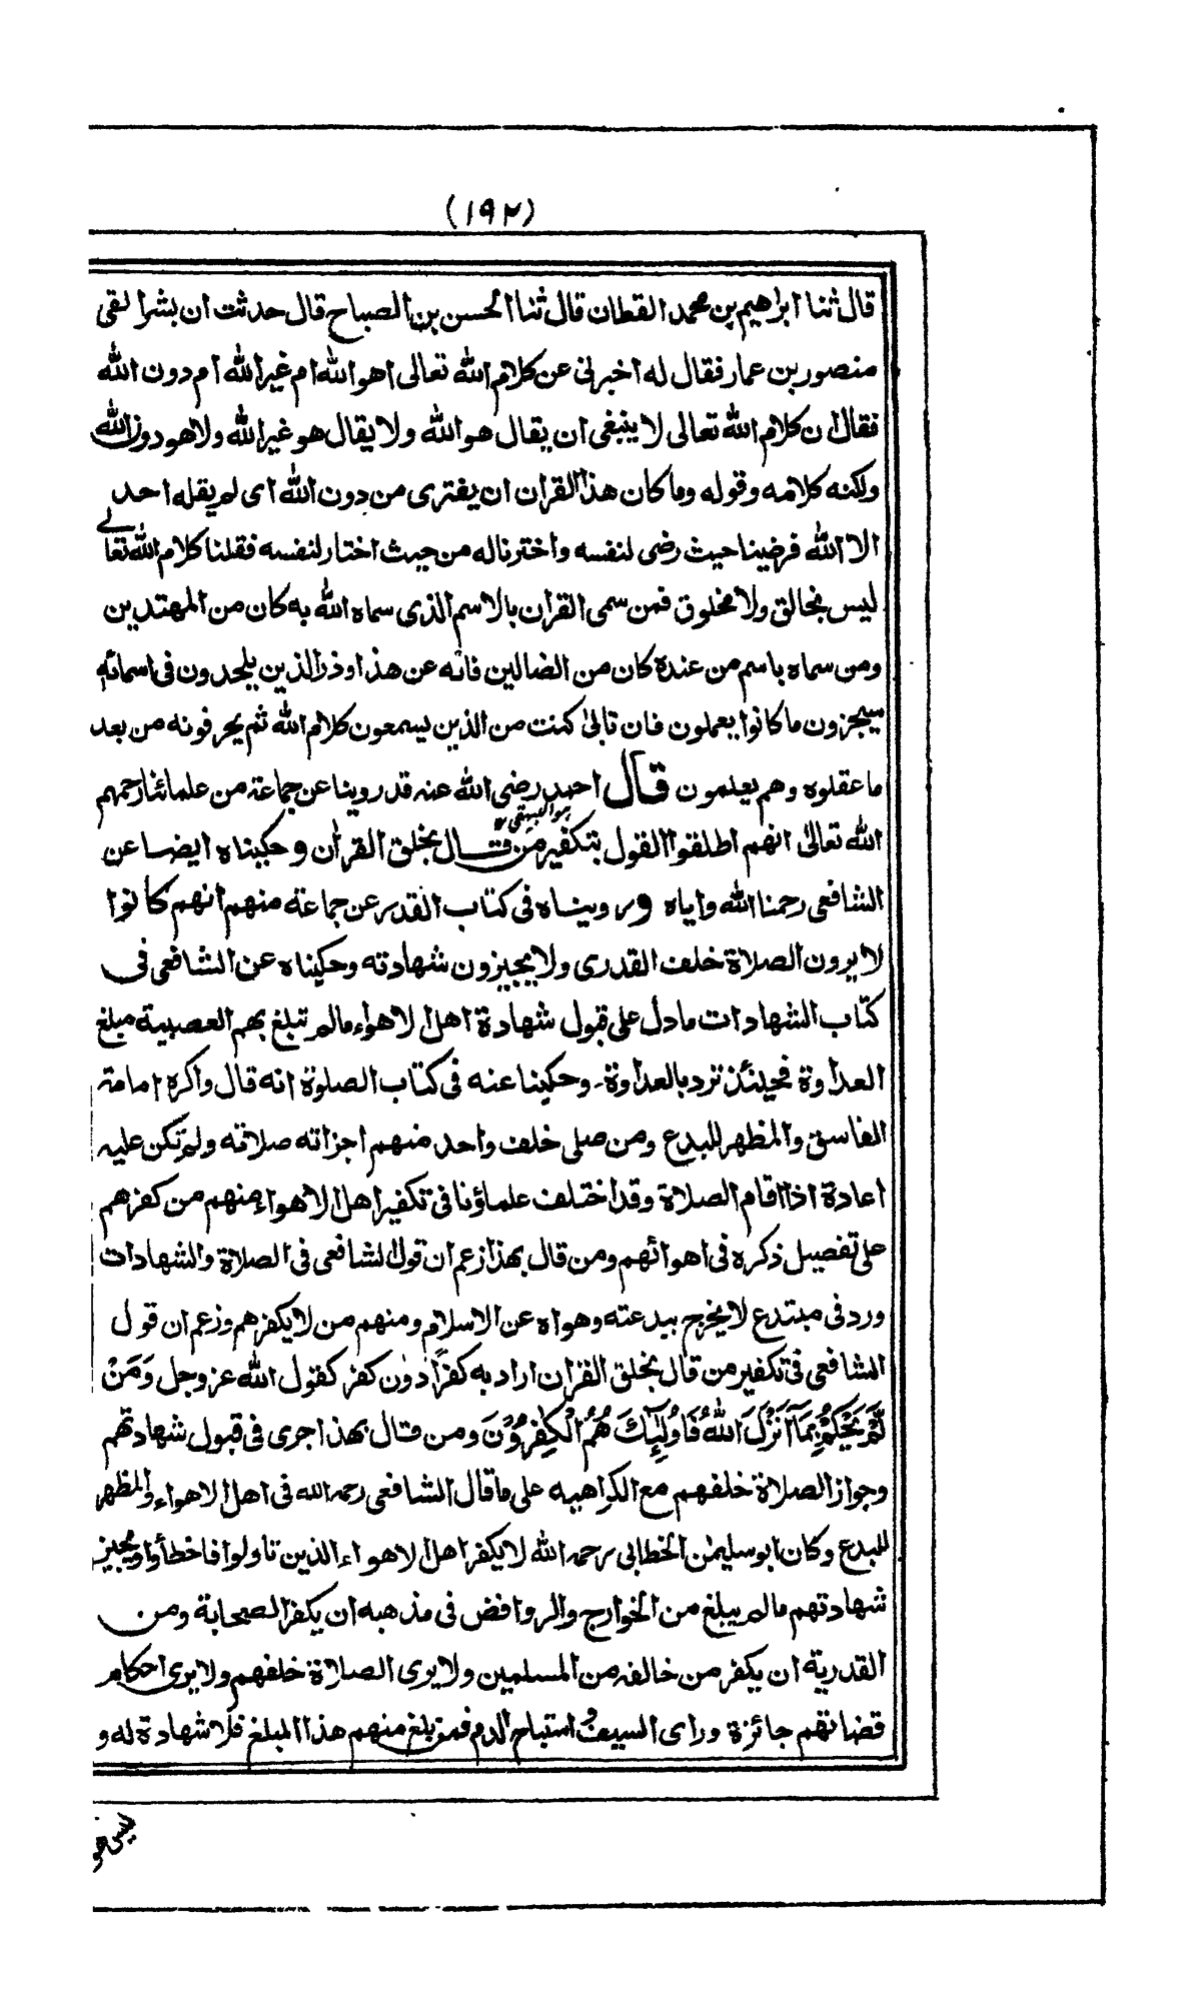 (١٩٢)
قال ثنا ابراهيم بن محمد القطان قال ثنا الحسن بن الصباح قال حدثت ان بشرا لقى
منصور بن عمار فقال له اخبرنى عن كلام الله تعالى اهو الله ام غير الله ام دون الله
فقال ان كلام الله تعالى لا ينبغى ان يقال هو الله ولا يقال هو غير الله ولا هو دون الله
ولكنه كلامه وقوله وما كان هذا القران ان يفترى من دون الله اى لم يقله احد
الا الله فرضينا حيث رضى لنفسه واخترنا له من حيث اختار لنفسه فقلنا كلام الله تعالى
ليس بخالق ولا مخلوق فمن سمى القران بالاسم الذى سماه الله به كان من المهتدين
ومن سماه باسم من عنده كان من الضالين فانه عن هذا وذر الذين يلحدون فى اسمائه
سيجزون ما كانوا يعملون فان تابى كنت من الذين يسمعون كلام الله ثم يحرفونه من بعد
ما عقلوه وهم يعلمون قال احمد رضى الله عنه قد روينا عن جماعة من علمائنا رحمهم
هو البيهقى ١٢
الله تعالى انهم اطلقوا القول بتكفير من قال بخلق القران وحكيناه ايضا عن
الشافعى رحمنا الله واياه ورويناه فى كتاب القدر عن جماعة منهم انهم كانوا
لا يرون الصلاة خلف القدرى ولا يجيزون شهادته وحكيناه عن الشافعى فى
كتاب الشهادات ما دل على قبول شهادة اهل الاهواء ما لم تبلغ بهم العصبية مبلغ
العداوة فحينئذ ترد بالعداوة - وحكينا عنه فى كتاب الصلوة انه قال واكره امامة
الفاسق والمظهر للبدع ومن صلى خلف واحد منهم اجزاته صلاته ولم تكن عليه
اعادة اذا اقام الصلاة وقد اختلف علماؤنا فى تكفير اهل الاهواء منهم من كفرهم
على تفصيل ذكره فى اهوائهم ومن قال بهذا زعم ان قول الشافعى فى الصلاة والشهادات
ورد فى مبتدع لا يخرج ببدعته وهواه عن الاسلام ومنهم من لا يكفرهم وزعم ان قول
الشافعى فى تكفير من قال بخلق القران اراد به كفرًا دون كفر كقول الله عز وجل وَمَنْ
لَّمْ يَحْكُمْ بِمَآ اَنْزَلَ اللهُ فَاُولٰٓئِكَ هُمُ الْكٰفِرُوْنَ ومن قال بهذا جرى فى قبول شهادتهم
وجواز الصلاة خلفهم مع الكراهيه على ما قال الشافعى رحمه الله فى اهل الاهواء والمظهر
للبدع وكان ابو سليمٰن الخطابى رحمه الله لا يكفر اهل الاهواء الذين تاولوا فاخطأوا ويجيز
شهادتهم ما لم يبلغ من الخوارج والروافض فى مذهبه ان يكفر الصحابة ومن
القدرية ان يكفر من خالفه من المسلمين ولا يرى الصلاة خلفهم ولا يرى احكام
قضاتهم جائزة وراى السيف واستباح الدم فمن بلغ منهم هذا المبلغ فلا شهادة له و